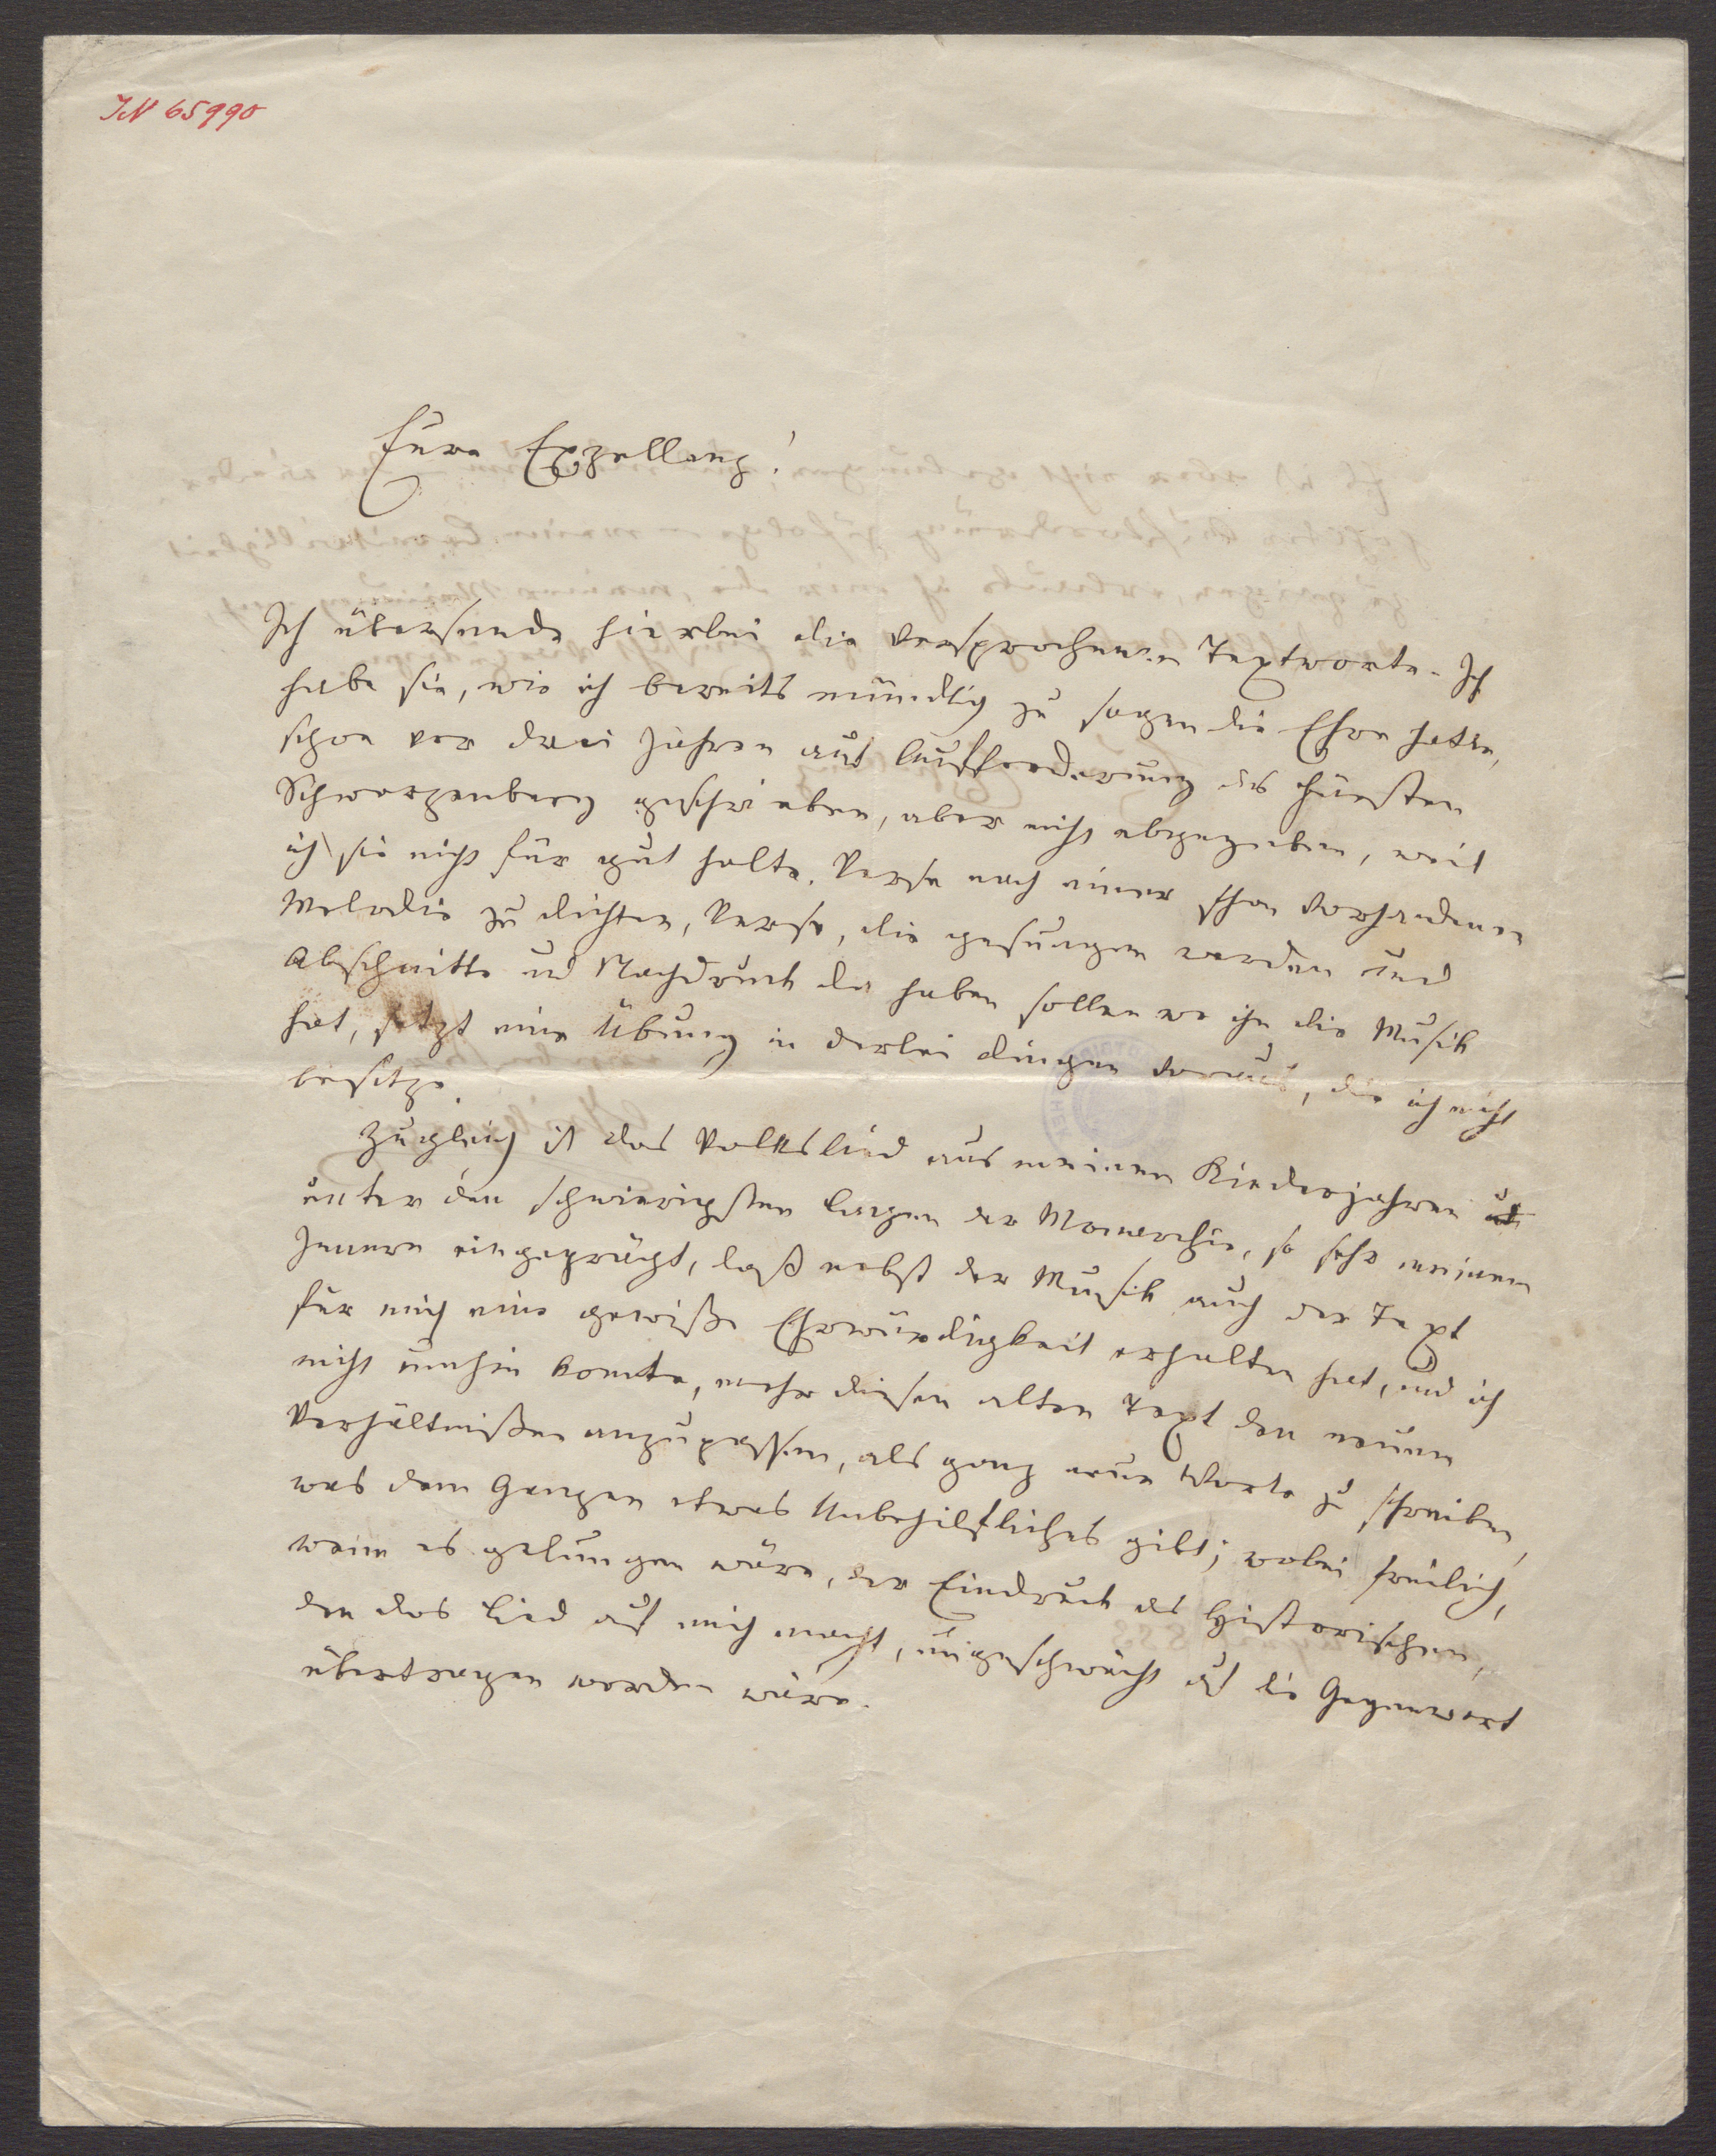 IN 65990
Eure Exzellenz!
Ich übersende hierbei die versprochenen Textworte. Ich
habe sie, wie ich bereits mündlich zu sagen die Ehre hatte,
schon vor drei Jahren auf Aufforderung des Fürsten
Schwarzenberg geschrieben, aber nicht abgegeben, weil
ich sie nicht für gut halte. Verse nach einer schon vorhandenen
Melodie zu dichten, Verse, die gesungen werden und
Abschnitte und Nachdruck da haben sollen wo ihn die Musik
hat, setzt eine Übung in derlei Dingen voraus, die ich nicht
besitze.
Zugleich ist das Volkslied aus meinen Kinderjahren u
unter den schwierigsten Lagen der Monarchie, so sehr meinem
Innern eingeprägt, daß nebst der Musik auch der Text
für mich eine gewiße Ehrwürdigkeit erhalten hat, und ich
nicht umhin konnte, mehr diesen alten Text den neuen
Verhältnißen anzupassen, als ganz neue Worte zu schreiben,
was dem Ganzen etwas Unbehilfliches gibt; wobei freilich,
wenn es gelungen wäre, der Eindruck des Historischen,
den das Lied auf mich macht, ungeschwächt auf die Gegenwart
übertragen worden wäre.